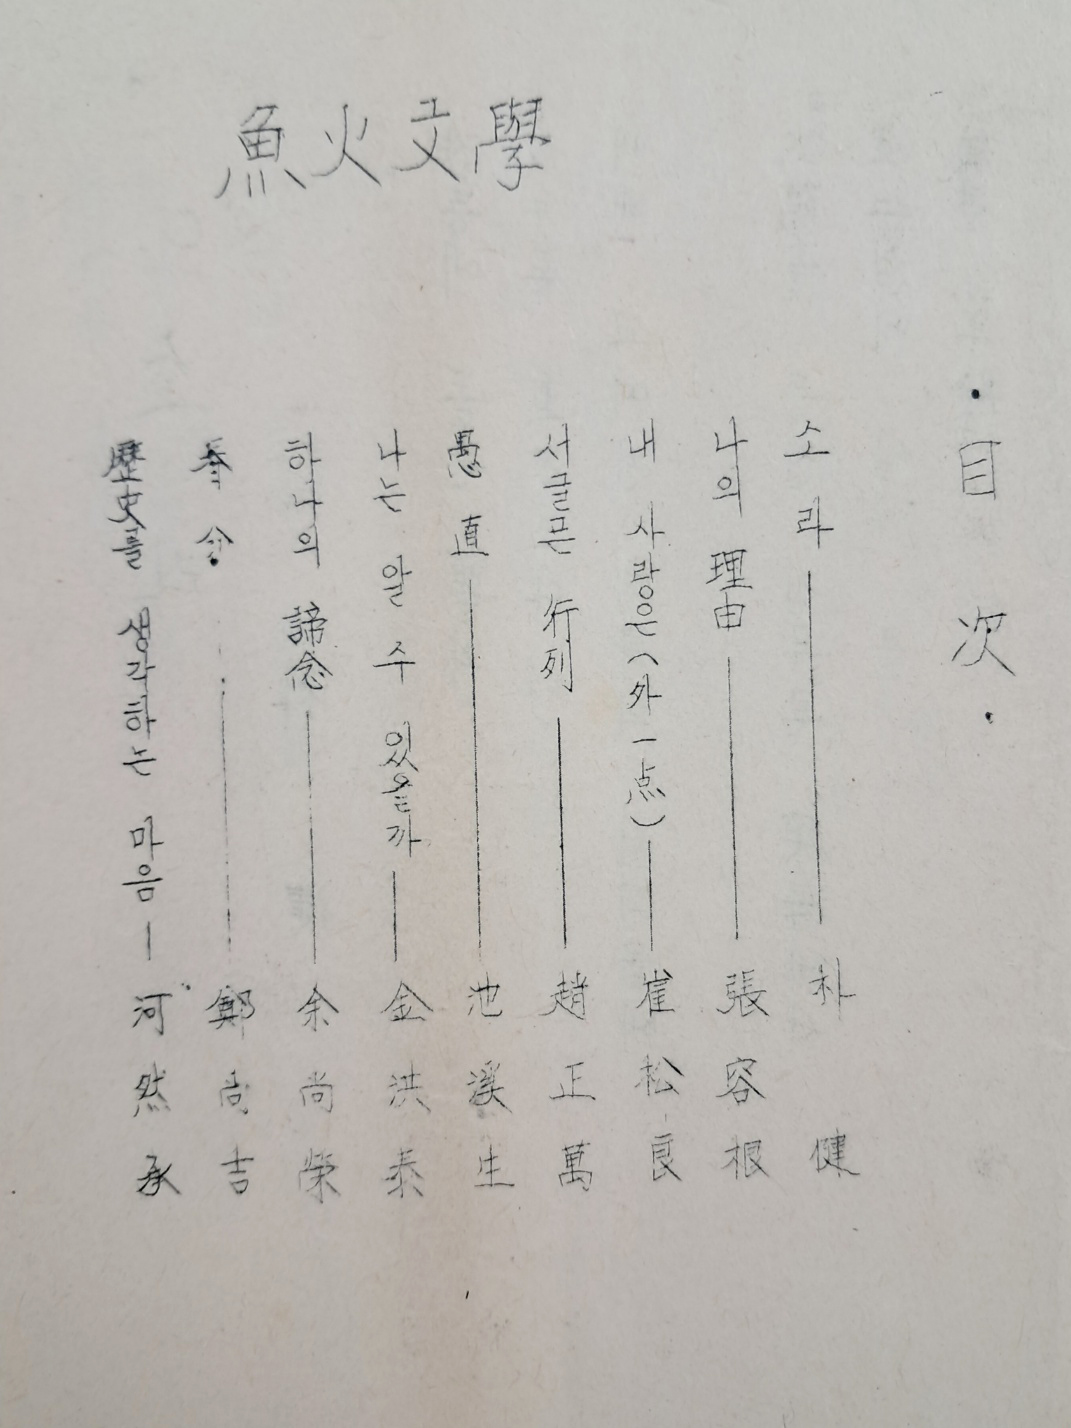 魚火文學
・目次・
소라 ― 朴 健
나의 理由 ― 張容根
내 사랑은 (外一点) ― 崔松良
서글픈 行列 ― 趙正萬
愚直 ― 池溪生
나는 알 수 있을까 ― 金洪泰
하나의 諦念 ― 余尚榮
― 鄭尚吉
歷史를 생각하는 마음 ― 河然承